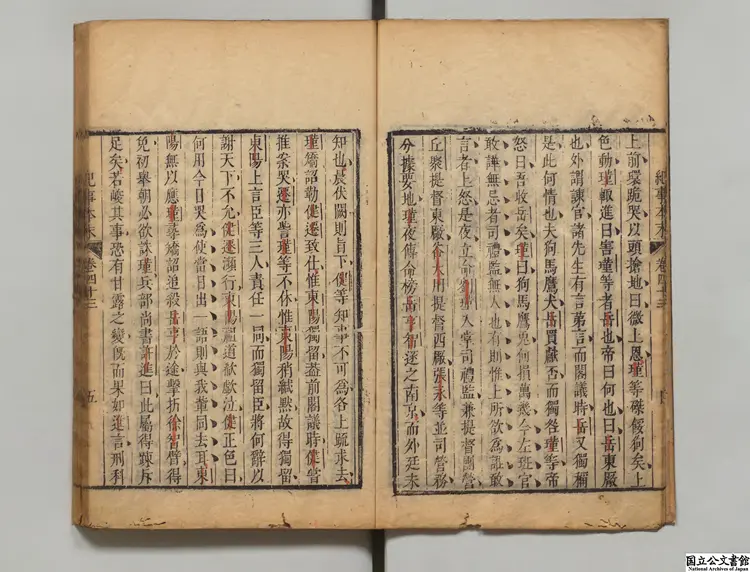 紀事本末 卷四十三
上前環跪哭以頭搶地曰微上恩瑾等磔餧狗矣上
色動瑾輙進曰害瑾等者岳也帝曰何也曰岳東厰
也外謂諫官諸先生有言第言而閣議時岳又獨稱
是此何情也夫狗馬鷹犬岳買獻否而獨咎瑾等帝
怒曰吾收岳矣瑾曰狗馬鷹兔何損萬幾今左班官
敢譁無忌者司禮監無人也有則惟上所欲爲誰敢
言者上怒是夜立命劉瑾入掌司禮監兼提督團營
丘聚提督東厰谷大用提督西厰張永等並司營務
分據要地瑾夜傳命榜岳亨智逐之南京而外廷未
知也晨伏闕則旨下健等知事不可爲各上疏求去
瑾矯詔勒健遷致仕惟東陽獨留蓋前閣議時健嘗
推案哭遷亦訾瑾等不休惟東陽稍緘默故得獨留
東陽上言臣等三人責任一同而獨留臣將何辭以
謝天下不允健遷瀕行東陽祖道歔欷泣健正色曰
何用今日哭爲使當日出一語則與我輩同去耳東
陽無以應瑾尋矯詔追殺岳亨於途擊折徐智臂得
免初舉朝必欲誅瑾兵部尚書許進曰此屬得疎斥
足矣若峻其事恐有甘露之變既而果如進言刑科
紀事本末 卷四十三 五
国立公文書館
National Archives of Japan